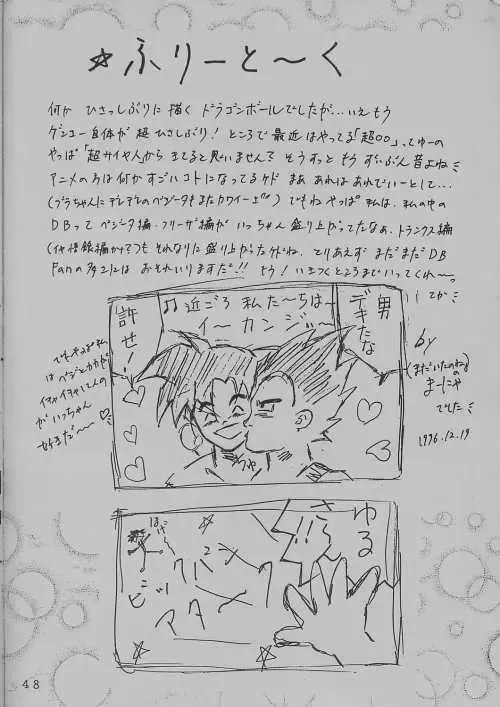 ☆ふりーと～く
何か ひさっしぶりに描く ドラゴンボールでしたが…いえもう
ゲンコー自体が超ひさしぶり! ところで最近はやってる「超○○」ってゆーの
やっぱ「超サイヤ人」から きてると思いません? そうすっと もう ずいぶん昔よね
アニメの方は何かすごいコトになってるケド まあ あれはあれでいーとして…
(ブラちゃんにデレデレのベジータもまたカワイーが) でもね やっぱ 私は、私の中の
DBって ベジータ編・フリーザ編が いっちゃん盛り上がってたなあ、トランクス編
それなりに盛り上がったケドね、とりあえず まだまだDB
Fanの多さには おそれいりますだ!! もう! いきつくところまでいってくれ～っ
てか
男
デキたな
近ごろ 私た～ちは～
イ～カンジ～
♫
許せ!
でもやっぱ私
はベジとカカが
イチャイチャしてんの
がいっちゃん
好きだ～
by
(まだいたのね)
まーにゃ
でした
1996.12.19
ゆる
さん
!!
48